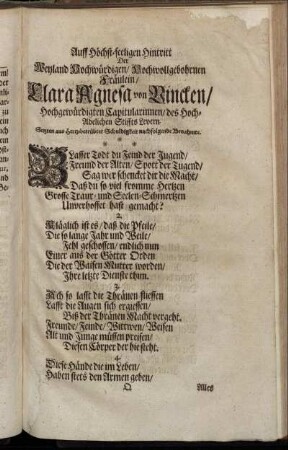 Auff Höchst-seeligen Hintritt
Der
Weyland Hochwürdigen / Hochwollgebohrnen
Fräulein /
Clara Agnesa von Vincken /
Hochgewürdigten Capitularinnen / des Hoch-
Adelichen Stifftes Levern.
Setzten aus hertzbetrübter Schuldigkeit nachfolgende Benahmte.
BLasser Todt du Feind der Jugend /
Freund der Alten / Spott der Tugend /
Sag wer schencket dir die Macht /
Daß du so viel fromme Hertzen
Grosse Traur- und Seelen-Schmertzen
Unverhoffet hast gemacht?
2.
Kläglich ist es / daß die Pfeile /
Die so lange Jahr und Weile /
Fehl geschossen / endlich nun
Einer aus der Götter Orden
Die der Waisen Mutter worden /
Ihre letzte Dienste thun.
3.
Ach so lasst die Thränen fliessen
Lasst die Augen sich ergiessen /
Biß der Thränen Macht vergeht.
Freunde / Feinde / Wittwen / Weisen
Alt und Junge müssen preisen /
Diesen Cörper der hie steht.
4.
Diese Hände die im Leben /
Haben stets den Armen geben /
Q
Alles